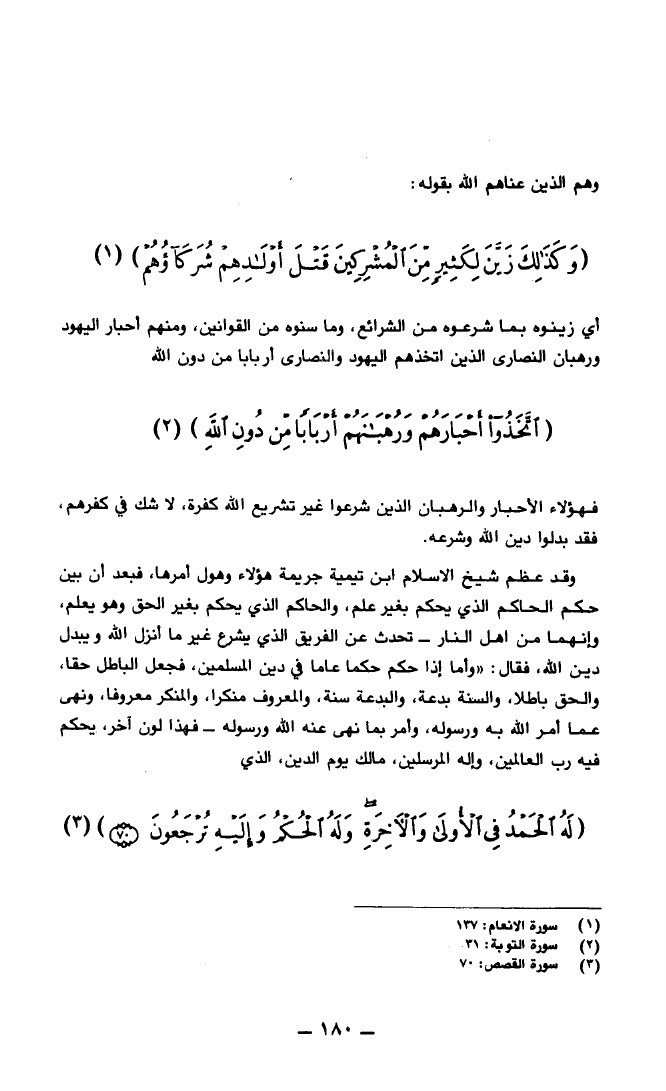 وهم الذين عناهم الله بقوله :
(وَكَذَٰلِكَ زَيَّنَ لِكَثِيرٍ مِّنَ ٱلْمُشْرِكِينَ قَتْلَ أَوْلَٰدِهِمْ شُرَكَآؤُهُمْ) (١)
أي زينوه بما شرعوه من الشرائع، وما سنوه من القوانين، ومنهم أحبار اليهود
ورهبان النصارى الذين اتخذهم اليهود والنصارى أربابا من دون الله
(ٱتَّخَذُوٓا۟ أَحْبَارَهُمْ وَرُهْبَٰنَهُمْ أَرْبَابًا مِّن دُونِ ٱللَّهِ) (٢)
فهؤلاء الأحبار والرهبان الذين شرعوا غير تشريع الله كفرة، لا شك في كفرهم،
فقد بدلوا دين الله وشرعه.
وقد عظم شيخ الاسلام ابن تيمية جريمة هؤلاء وهول أمرها، فبعد أن بين
حكم الحاكم الذي يحكم بغير علم، والحاكم الذي يحكم بغير الحق وهو يعلم،
وإنهما من اهل النار – تحدث عن الفريق الذي يشرع غير ما أنزل الله ويبدل
دين الله، فقال : «وأما إذا حكم حكما عاما في دين المسلمين، فجعل الباطل حقا،
والحق باطلا، والسنة بدعة، والبدعة سنة، والمعروف منكرا، والمنكر معروفا، ونهى
عما أمر الله به ورسوله، وأمر بما نهى عنه الله ورسوله – فهذا لون آخر، يحكم
فيه رب العالمين، وإله المرسلين، مالك يوم الدين، الذي
(لَهُ ٱلْحَمْدُ فِى ٱلْأُولَىٰ وَٱلْآخِرَةِ ۖ وَلَهُ ٱلْحُكْمُ وَإِلَيْهِ تُرْجَعُونَ ٧٠) (٣)
(١) سورة الانعام : ١٣٧
(٢) سورة التوبة : ٣١
(٣) سورة القصص : ٧٠
– ١٨٠ –